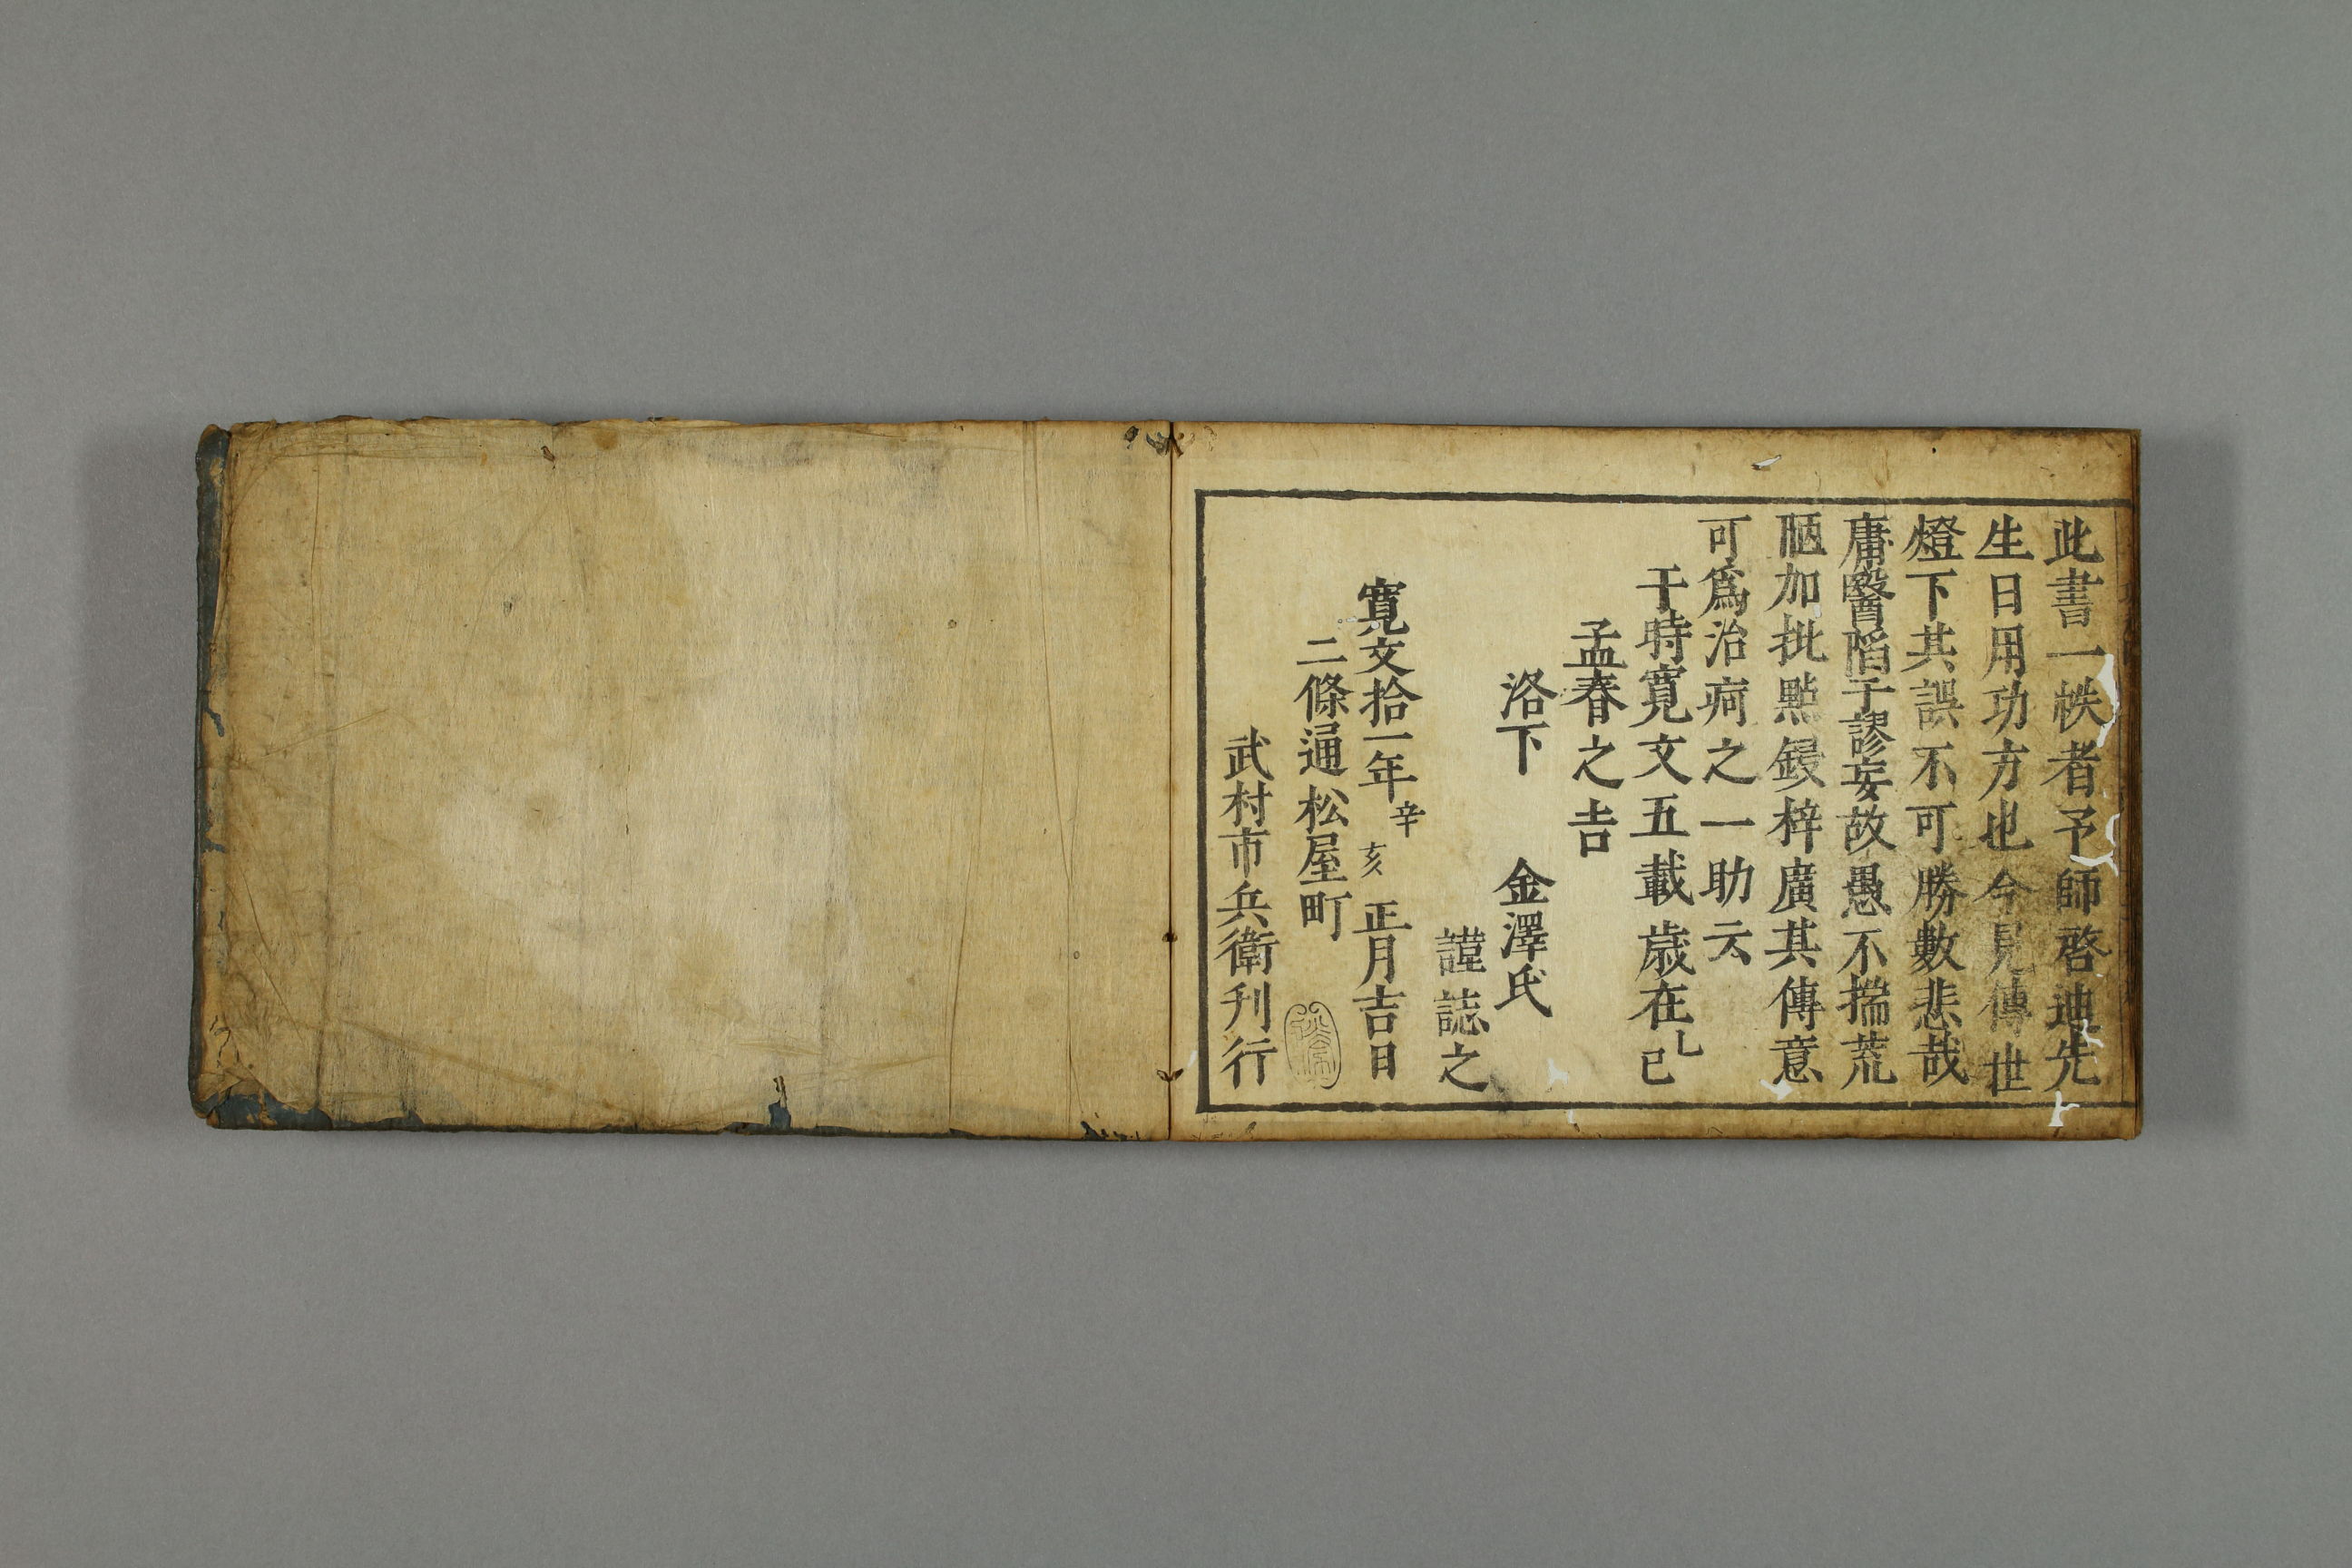 此書一帙者予師啓迪先
生日用功方也今見傳世
燈下其誤不可勝數悲哉
庸醫陷于謬妄故愚不揣荒
陋加批點鋟梓廣其傳意
可爲治痾之一助云
于時寛文五載歳在乙巳
孟春之吉
洛下 金澤氏
謹誌之
寛文拾一年辛亥正月吉日
二條通松屋町
武村市兵衛刋行